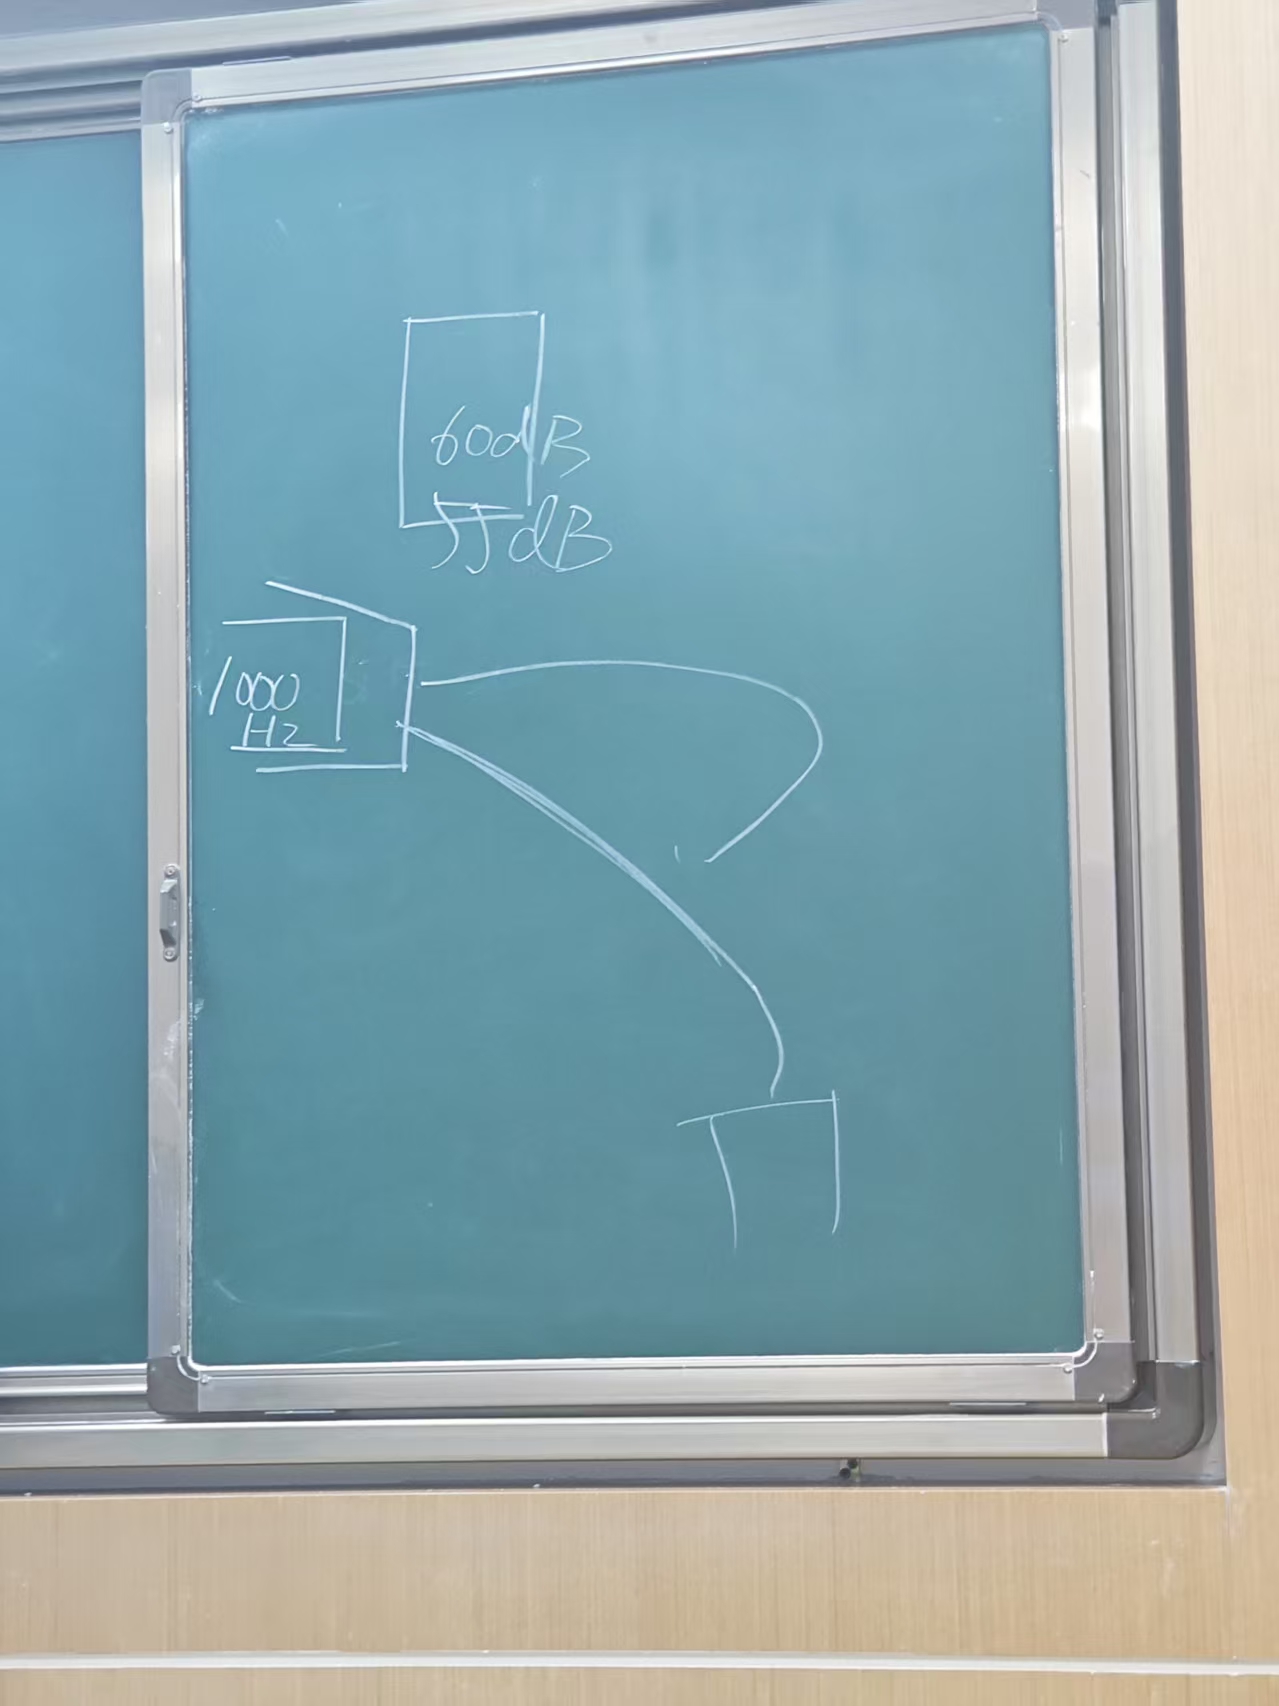 60dB
55dB
1000
Hz